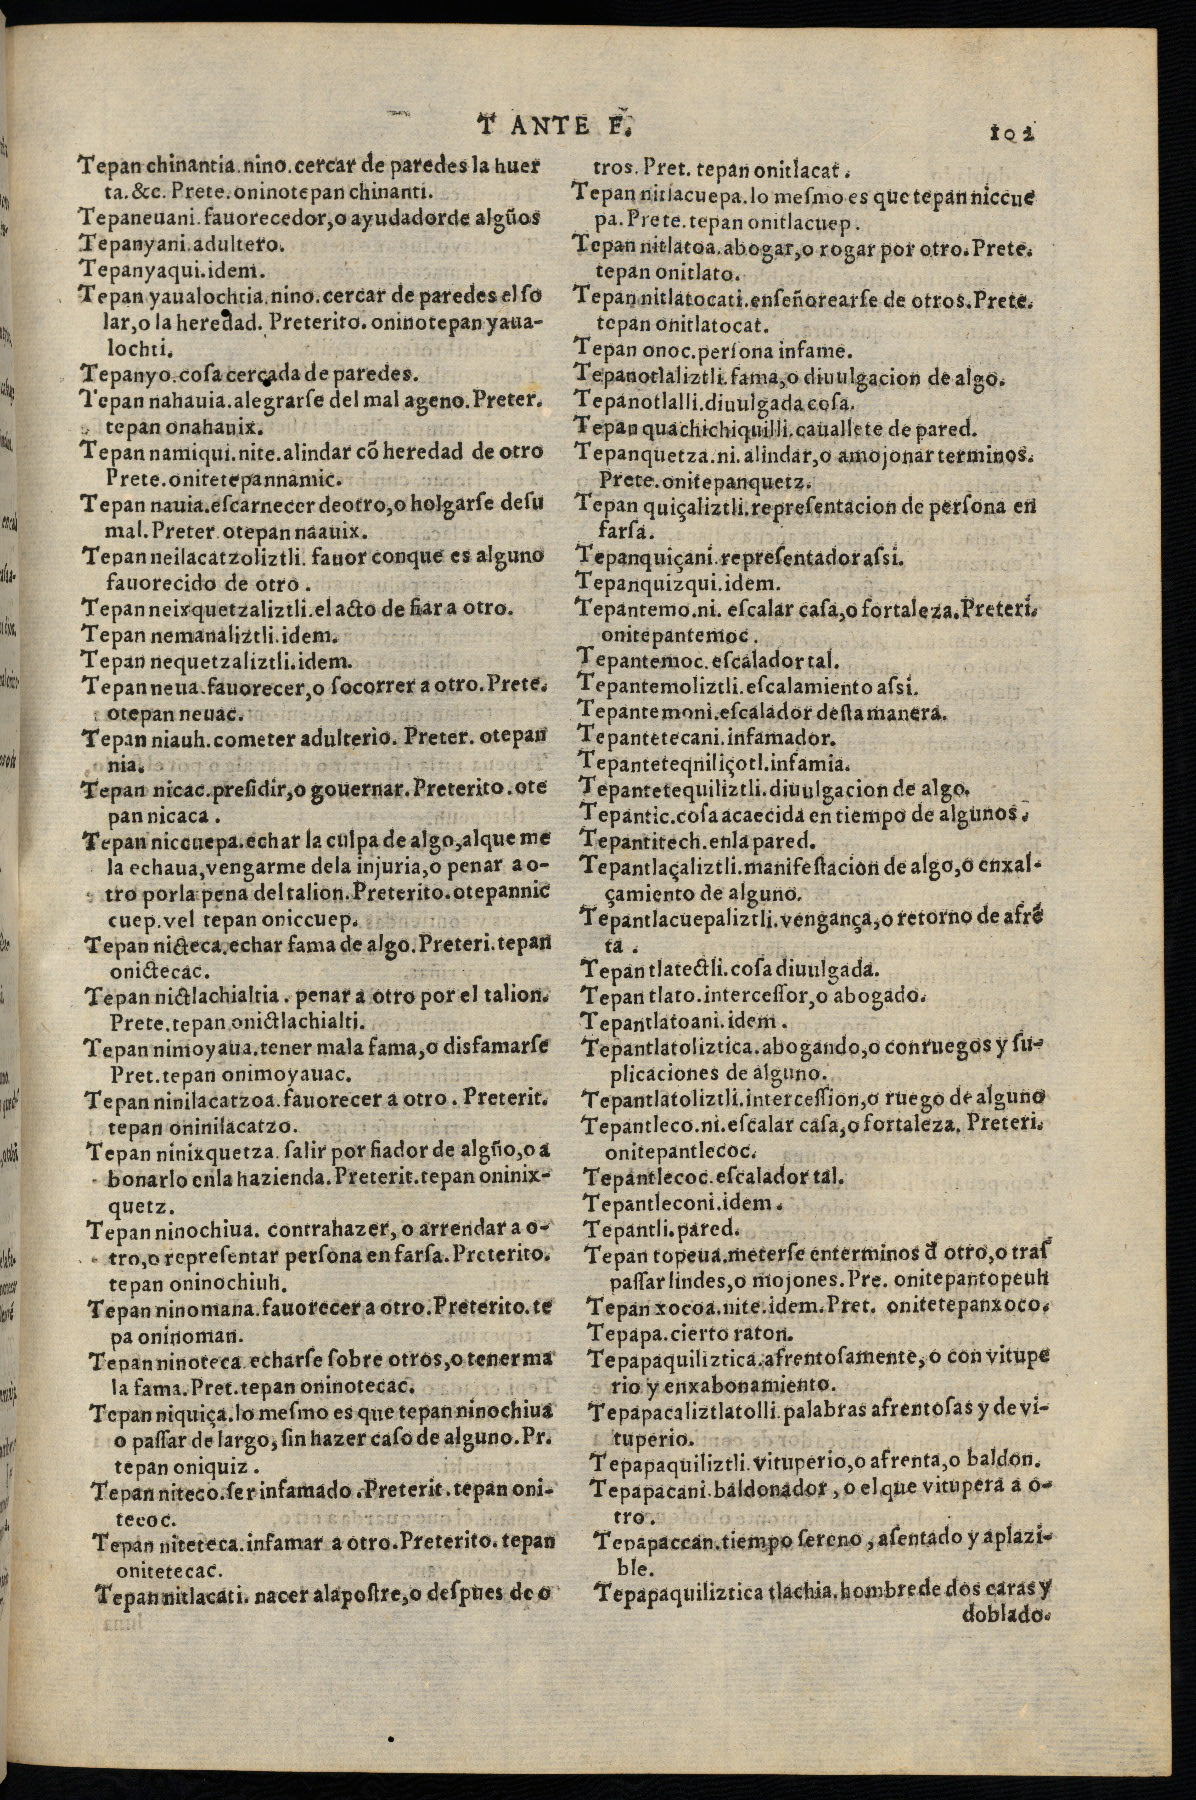 T ANTE E.
102
Tepan chinantia.nino.cercar de paredes la huer
ta.&c. Prete.oninotepan chinanti.
Tepaneuani.fauorecedor,o ayudadorde algũos
Tepanyani.adultero.
Tepanyaqui.idem.
Tepan yaualochtia.nino.cercar de paredes el ſo
lar,o la heredad. Preterito.oninotepan yaua-
lochti.
Tepanyo.coſa cercada de paredes.
Tepan nahauia.alegrarſe del mal ageno.Preter.
tepan onahauix.
Tepan namiqui.nite.alindar cõ heredad de otro
Prete.onitetepannamic.
Tepan nauia.eſcarnecer deotro,o holgarſe deſu
mal.Preter.otepan naauix.
Tepan neilacatzoliztli. fauor conque es alguno
fauorecido de otro.
Tepan neixquetzaliztli.el acto de fiar a otro.
Tepan nemanaliztli.idem.
Tepan nequetzaliztli.idem.
Tepan neua.fauorecer,o ſocorrer a otro.Prete.
otepan neuac.
Tepan niauh.cometer adulterio. Preter. otepan
nia.
Tepan nicac.preſidir,o gouernar.Preterito.ote
pan nicaca.
Tepan niccuepa.echar la culpa de algo,alque me
la echaua,vengarme dela injuria,o penar a o-
tro porla pena del talion.Preterito.otepannic
cuep.vel tepan oniccuep.
Tepan nicteca.echar fama de algo.Preteri.tepan
onictecac.
Tepan nictlachialtia. penar a otro por el talion.
Prete.tepan onictlachialti.
Tepan nimoyaua.tener mala fama,o disfamarſe
Pret.tepan onimoyauac.
Tepan ninilacatzoa.fauorecer a otro. Preterit.
tepan oninilacatzo.
Tepan ninixquetza. ſalir por fiador de algũo,o a
bonarlo enla hazienda.Preterit.tepan oninix-
quetz.
Tepan ninochiua. contrahazer, o arrendar a o-
tro,o repreſentar perſona en farſa.Preterito.
tepan oninochiuh.
Tepan ninomana.fauorecer a otro.Preterito.te
pa oninoman.
Tepan ninoteca.echarſe ſobre otros,o tener ma
la fama.Pret.tepan oninotecac.
Tepan niquiça.lo meſmo es que tepan ninochiua
o paſſar de largo,ſin hazer caſo de alguno.Pr.
tepan oniquiz.
Tepan niteco.ſer infamado.Preterit.tepan oni-
tecoc.
Tepan niteteca.infamar a otro.Preterito.tepan
onitetecac.
Tepan nitlacati. nacer alapoſtre,o deſpues de o
tros.Pret. tepan onitlacat.
Tepan nitlacuepa.lo meſmo es que tepan niccue
pa.Prete.tepan onitlacuep.
Tepan nitlatoa.abogar,o rogar por otro.Prete.
tepan onitlato.
Tepan nitlatocati.enſeñorearſe de otros.Prete.
tepan onitlatocat.
Tepan onoc.perſona infame.
Tepanotlaliztli.fama,o diuulgacion de algo.
Tepanotlalli.diuulgada coſa.
Tepan quachichiquilli.cauallete de pared.
Tepanquetza.ni.alindar,o amojonar terminos.
Prete.onitepanquetz.
Tepan quiçaliztli.repreſentacion de perſona en
farſa.
Tepanquiçani.repreſentador aſſi.
Tepanquizqui.idem.
Tepantemo.ni. eſcalar caſa,o fortaleza.Preteri.
onitepantemoc.
Tepantemoc.eſcalador tal.
Tepantemoliztli.eſcalamiento aſſi.
Tepantemoni.eſcalador deſta manera.
Tepantetecani.infamador.
Tepanteteqniliçotl.infamia.
Tepantetequiliztli.diuulgacion de algo.
Tepantic.coſa acaecida en tiempo de algunos.
Tepantitech.enla pared.
Tepantlaçaliztli.manifeſtacion de algo,o enxal-
çamiento de alguno.
Tepantlacuepaliztli.vengança,o retorno de afrẽ
ta.
Tepan tlatectli.coſa diuulgada.
Tepan tlato.interceſſor,o abogado.
Tepantlatoani.idem.
Tepantlatoliztica.abogando,o conruegos y ſu-
plicaciones de alguno.
Tepantlatoliztli.interceſſion,o ruego de alguno
Tepantleco.ni.eſcalar caſa,o fortaleza. Preteri.
onitepantlecoc.
Tepantlecoc.eſcalador tal.
Tepantleconi.idem.
Tepantli.pared.
Tepan topeua.meterſe enterminos đ otro,o traſ
paſſar lindes,o mojones.Pre. onitepantopeuh
Tepan xocoa.nite.idem.Pret. onitetepanxoco.
Tepapa.cierto raton.
Tepapaquiliztica.afrentoſamente,o con vitupe
rio y enxabonamiento.
Tepapacaliztlatolli.palabras afrentoſas y de vi-
tuperio.
Tepapaquiliztli.vituperio,o afrenta,o baldon.
Tepapacani.baldonador, o el que vitupera a o-
tro.
Tepapaccan.tiempo ſereno, aſentado y aplazi-
ble.
Tepapaquiliztica tlachia.hombre de dos caras y
doblado.